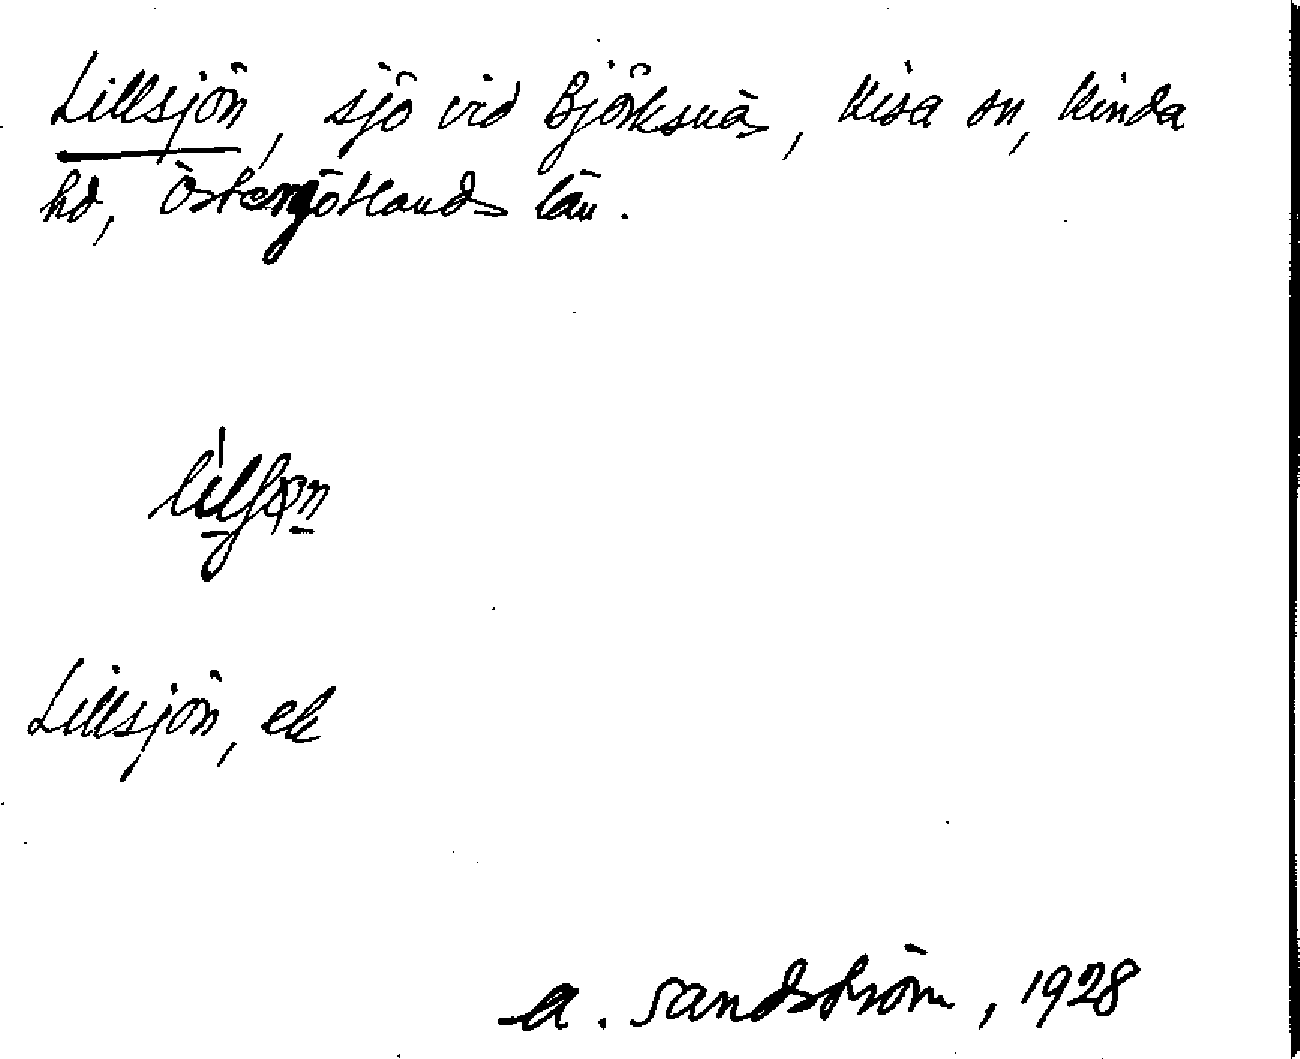 Lillsjön, sjö vid Björksnäs, Kisa sn, Kinda
hd, Östergötlands län.
Lillsjön, ek
A. Sandström, 1928